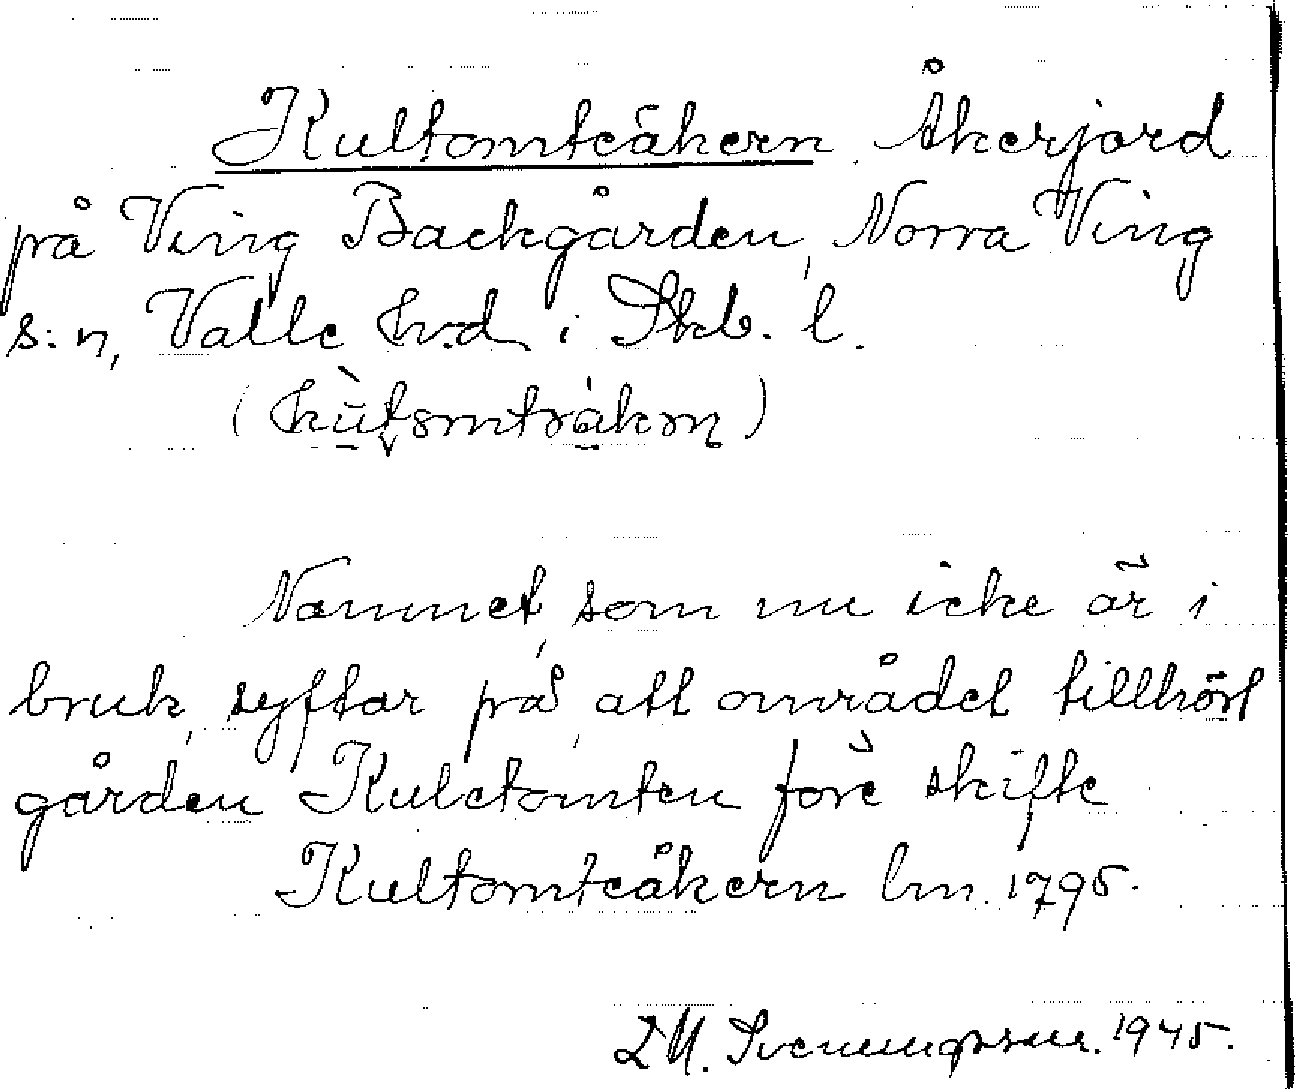 Kultomteåkern Åkerjord
på Ving Backgården, Norra Ving
s:n, Valle hd. i Skb. l.
Namnet, som nu icke är i
bruk, syftar på, att området tillhört
gården Kuletomten före skifte
Kultomteåkern lm. 1795.
Svenungsson. 1945.